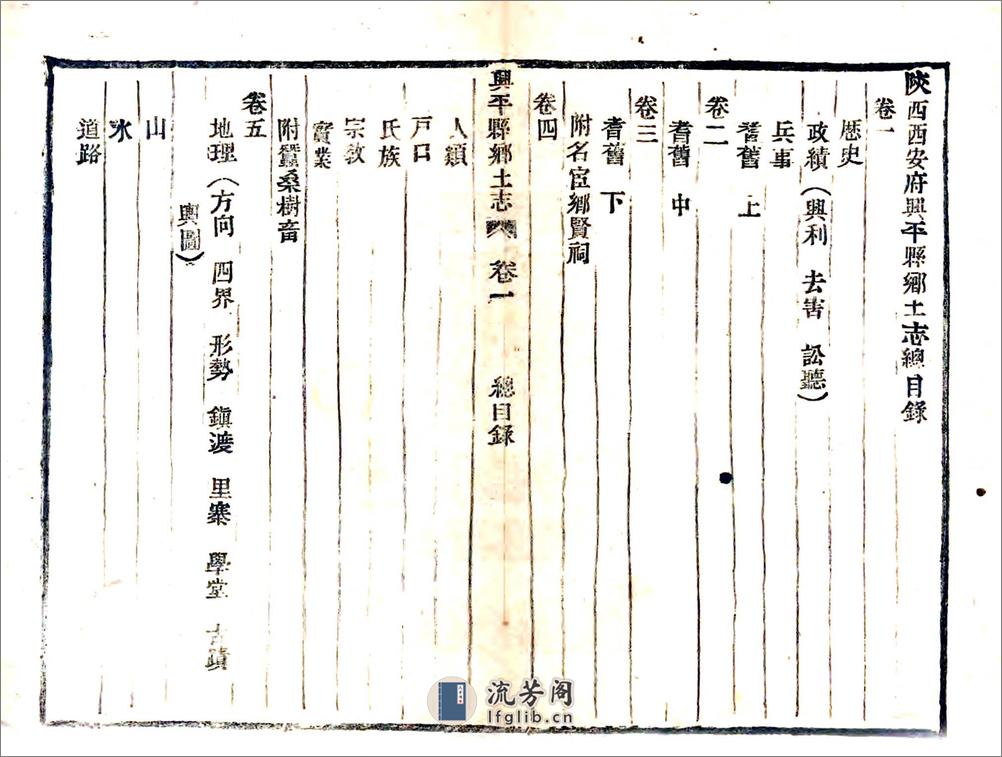 陝西西安府興平縣鄉土志總目錄
卷一
歷史
政績（興利 去害 訟聽）
兵事
耆舊 上
卷二
耆舊 中
卷三
耆舊 下
附名宦鄉賢祠
卷四
興平縣鄉土志 卷一 總目錄
人類
戶口
氏族
宗敎
實業
附蠶桑樹畜
卷五
地理（方向 四界 形勢 鎭渡 里寨 學堂 古蹟
輿圖）
山
水
道路
流芳阁
lfglib.cn